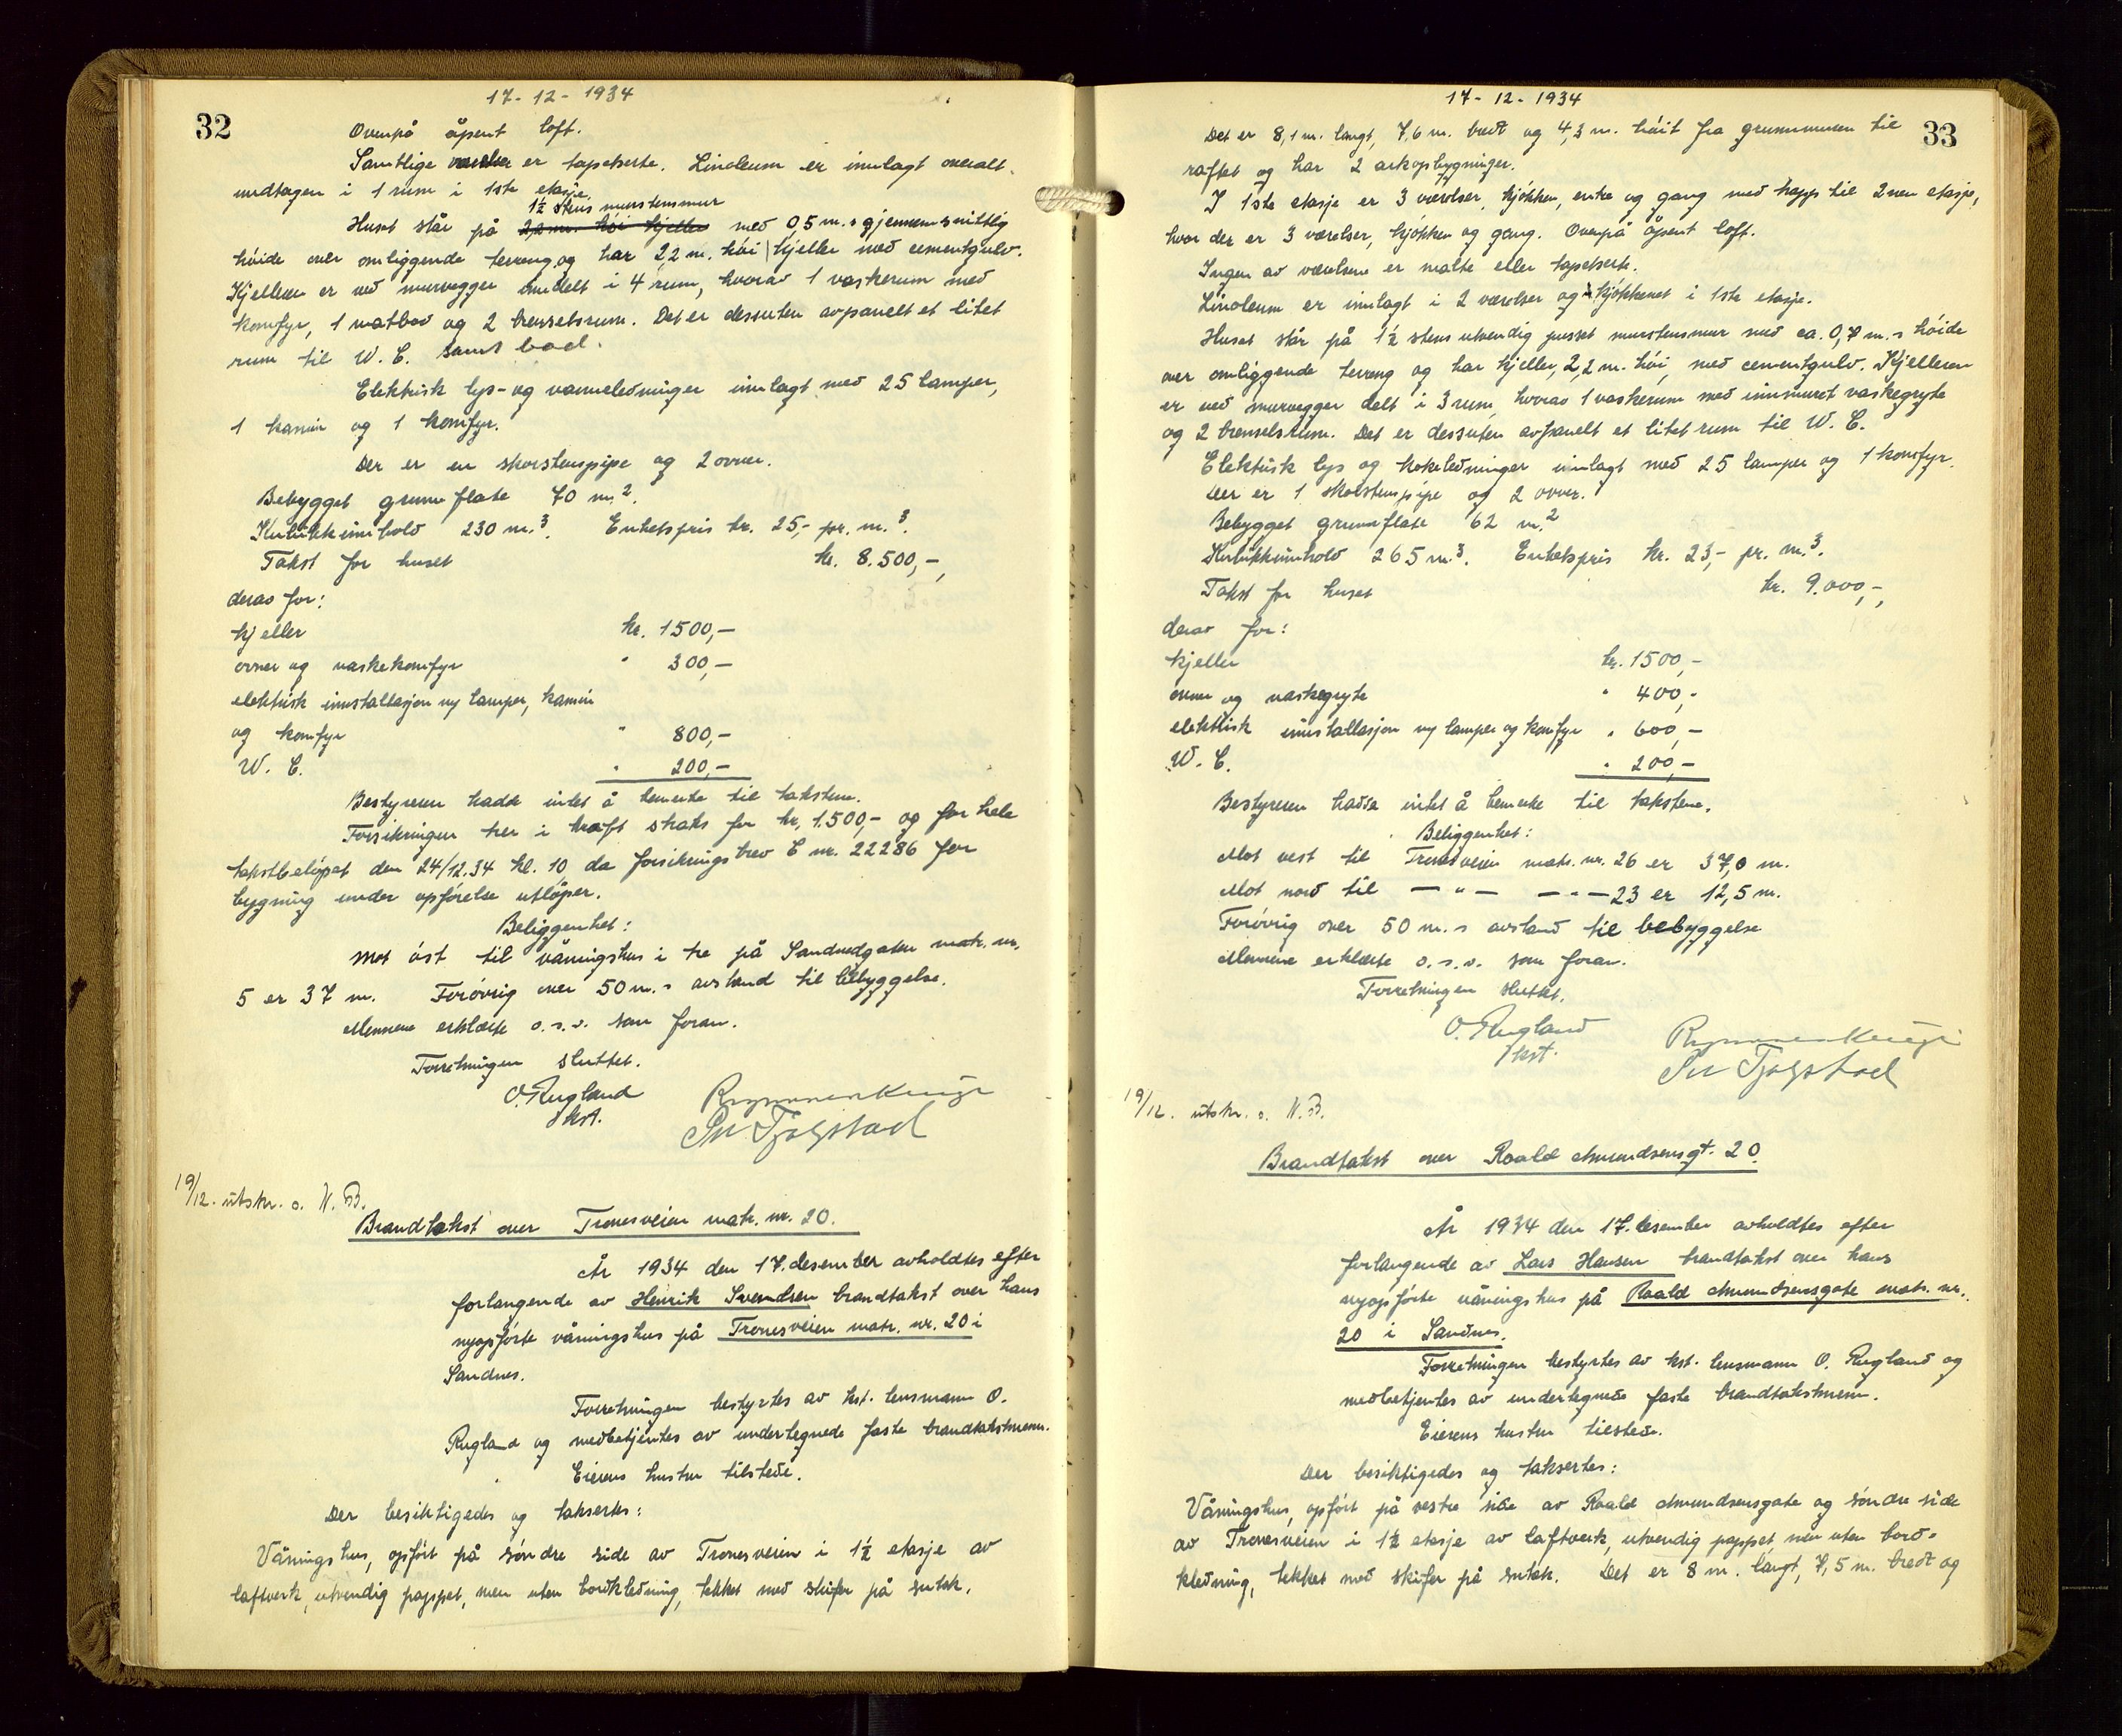 17-12-1934
32
Ovenpå åpent loft.
Samtlige værelser er tapetserte. Linoleum er innlagt overalt.
undtagen i 1 rum i 1ste etasje.
1½ stens murstensmur
Huset står på 2,2 m. høi kjeller med 0,5 m.s gjennemsnittlig
høide over omliggende terreng og har 2,2 m. høi kjeller med cementgulv.
Kjelleren er ved murvegger inndelt i 4 rum, hvorav 1 vaskerum med
komfyr, 1 matbod og 2 brenselsrum. Det er dessuten avpanelt et litet
rum til W. C. samt bad.
Elektrisk lys- og varmeledninger innlagt med 25 lamper,
1 kamin og 1 komfyr.
Der er en skorstenspipe og 2 ovner.
Bebygget grunnflate 70 m.².
Kubikkinnhold 230 m.³. Enhetspris kr. 25,- pr. m.³.
Takst for huset kr. 8.500,-,
derav for:
kjeller kr. 1500,-
ovner og vaskekomfyr " 300,-
elektrisk innstallasjon m/ lamper, kamin
og komfyr " 800,-
W. C. " 200,-
Bestyreren hadde intet å bemerke til takstene.
Forsikringen trer i kraft straks for kr. 1.500,- og for hele
takstbeløpet den 24/12.34 kl. 10, da forsikringsbrev C nr. 22286 for
bygning under opførelse utløper.
Beliggenhet:
Mot øst til våningshus i tre på Sandvedgaten matr. nr.
5 er 37 m. Forøvrig over 50 m.s avstand til bebyggelse.
Mennene erklærte o.s.v. som foran.
Forretningen sluttet.
O. Rugland
kst.
19/12. utskr. s. N. B.
Brandtakst over Tronesveien matr. nr. 20.
År 1934 den 17. desember avholdtes efter
forlangende av Henrik Svendsen brandtakst over hans
nyopførte våningshus på Tronesveien matr. nr. 20 i
Sandnes.
Forretningen bestyrtes av kst. lensmann O.
Rugland og medbetjentes av undertegnede faste brandtakstmenn.
Eierens hustru tilstede.
Der besiktigedes og taksertes:
Våningshus, opført på søndre side av Tronesveien i 1½ etasje av
laftverk, utvendig pappet, men uten bordkledning, tekket med skifer på sutak.
17-12-1934
33
Det er 8,1 m. langt, 7,6 m. bredt og 4,3 m. høit fra grunnmuren til
raftet og har 2 arkopbygninger.
I 1ste etasje er 3 værelser, kjøkken, entre og gang med trapp til 2nen etasje,
hvor der er 3 værelser, kjøkken og gang. Ovenpå åpent loft.
Ingen av værelsene er malte eller tapetserte.
Linoleum er innlagt i 2 værelser og kjøkkenet i 1ste etasje.
Huset står på 1½ stens utvendig pusset murstensmur med ca. 0,7 m.s høide
over omliggende terreng og har kjeller, 2,2 m. høi, med cementgulv. Kjelleren
er ved murvegger delt i 3 rum, hvorav 1 vaskerum med innmuret vaskegryte
og 2 brenselsrum. Det er dessuten avpanelt et litet rum til W. C.
Elektrisk lys og kokeledninger innlagt med 25 lamper og 1 komfyr.
Der er 1 skorstenspipe og 2 ovner.
Bebygget grunnflate 62 m.²
Kubikkinnhold 265 m.³. Enhetspris kr. 23,- pr. m.³.
Takst for huset kr. 9.000,-,
derav for:
kjeller kr. 1500,-
ovner og vaskegryte " 400,-
elektrisk innstallasjon m/ lamper og komfyr " 600,-
W. C. " 200,-
Bestyreren hadde intet å bemerke til takstene.
Beliggenhet:
Mot vest til Tronesveien matr. nr. 26 er 37,0 m.
Mot nord til — " — — " — 23 er 12,5 m.
Forøvrig over 50 m.s avstand til bebyggelse
Mennene erklærte o.s.v. som foran.
Forretningen sluttet.
O. Rugland
kst.
19/12. utskr. s. N. B.
Brandtakst over Roald Amundsensgt. 20.
År 1934 den 17. desember avholdtes efter
forlangende av Lars Hansen brandtakst over hans
nyopførte våningshus på Roald Amundsensgate matr. nr.
20 i Sandnes.
Forretningen bestyrtes av kst. lensmann O. Rugland og
medbetjentes av undertegnede faste brandtakstmenn.
Eierens hustru tilstede.
Der besiktigedes og taksertes:
Våningshus, opført på vestre side av Roald Amundsensgate og søndre side
av Tronesveien i 1½ etasje av laftverk, utvendig pappet, men uten bord-
kledning, tekket med skifer på sutak. Det er 8 m. langt, 7,5 m. bredt og